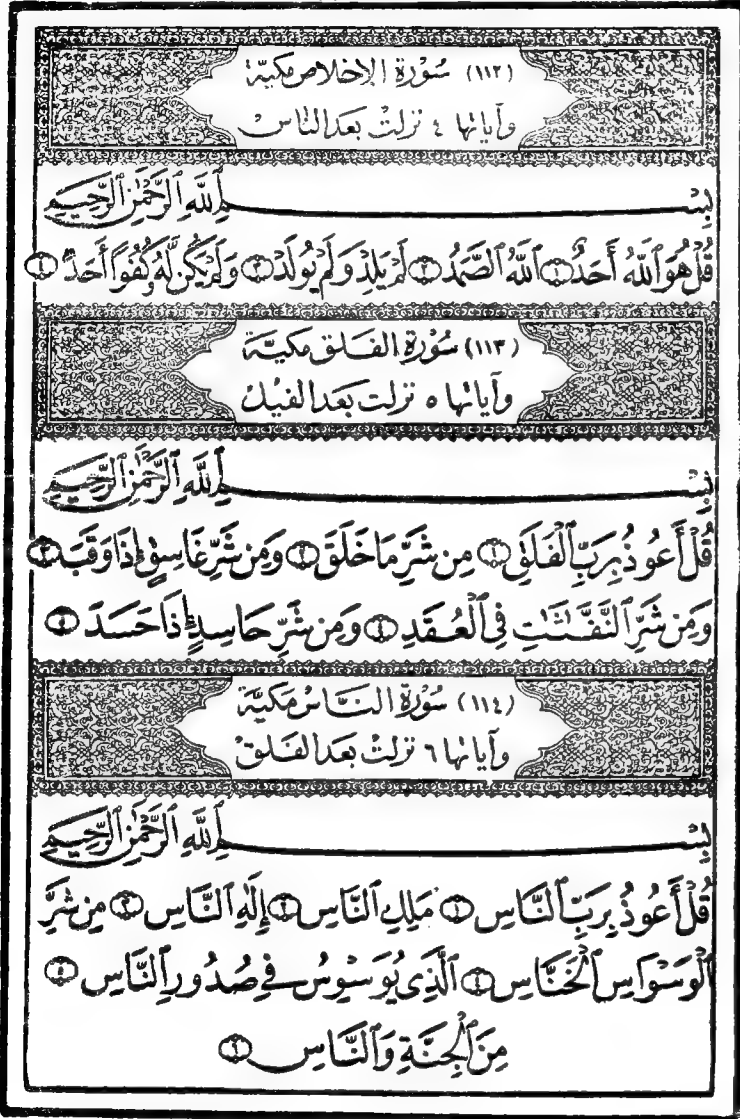 (١١٢) سُوْرَةِ الإخلاص مكيّة
وآياتها ٤ نزلتْ بعد النّاسْ
بِسْمِ ٱللَّهِ ٱلرَّحْمَٰنِ ٱلرَّحِيمِ
قُلْ هُوَ ٱللَّهُ أَحَدٌ ١ ٱللَّهُ ٱلصَّمَدُ ٢ لَمْ يَلِدْ وَلَمْ يُولَدْ ٣ وَلَمْ يَكُن لَّهُۥ كُفُوًا أَحَدٌۢ ٤
(١١٣) سُوْرَةِ الفَلَق مكيّة
وآياتها ٥ نزلت بعد الفيْل
بِسْمِ ٱللَّهِ ٱلرَّحْمَٰنِ ٱلرَّحِيمِ
قُلْ أَعُوذُ بِرَبِّ ٱلْفَلَقِ ١ مِن شَرِّ مَا خَلَقَ ٢ وَمِن شَرِّ غَاسِقٍ إِذَا وَقَبَ ٣
وَمِن شَرِّ ٱلنَّفَّٰثَٰتِ فِى ٱلْعُقَدِ ٤ وَمِن شَرِّ حَاسِدٍ إِذَا حَسَدَ ٥
(١١٤) سُوْرَةِ النَّاسْ مكيّة
وآياتها ٦ نزلتْ بعد الفَلقْ
بِسْمِ ٱللَّهِ ٱلرَّحْمَٰنِ ٱلرَّحِيمِ
قُلْ أَعُوذُ بِرَبِّ ٱلنَّاسِ ١ مَلِكِ ٱلنَّاسِ ٢ إِلَٰهِ ٱلنَّاسِ ٣ مِن شَرِّ
ٱلْوَسْوَاسِ ٱلْخَنَّاسِ ٤ ٱلَّذِى يُوَسْوِسُ فِى صُدُورِ ٱلنَّاسِ ٥
مِنَ ٱلْجِنَّةِ وَٱلنَّاسِ ٦